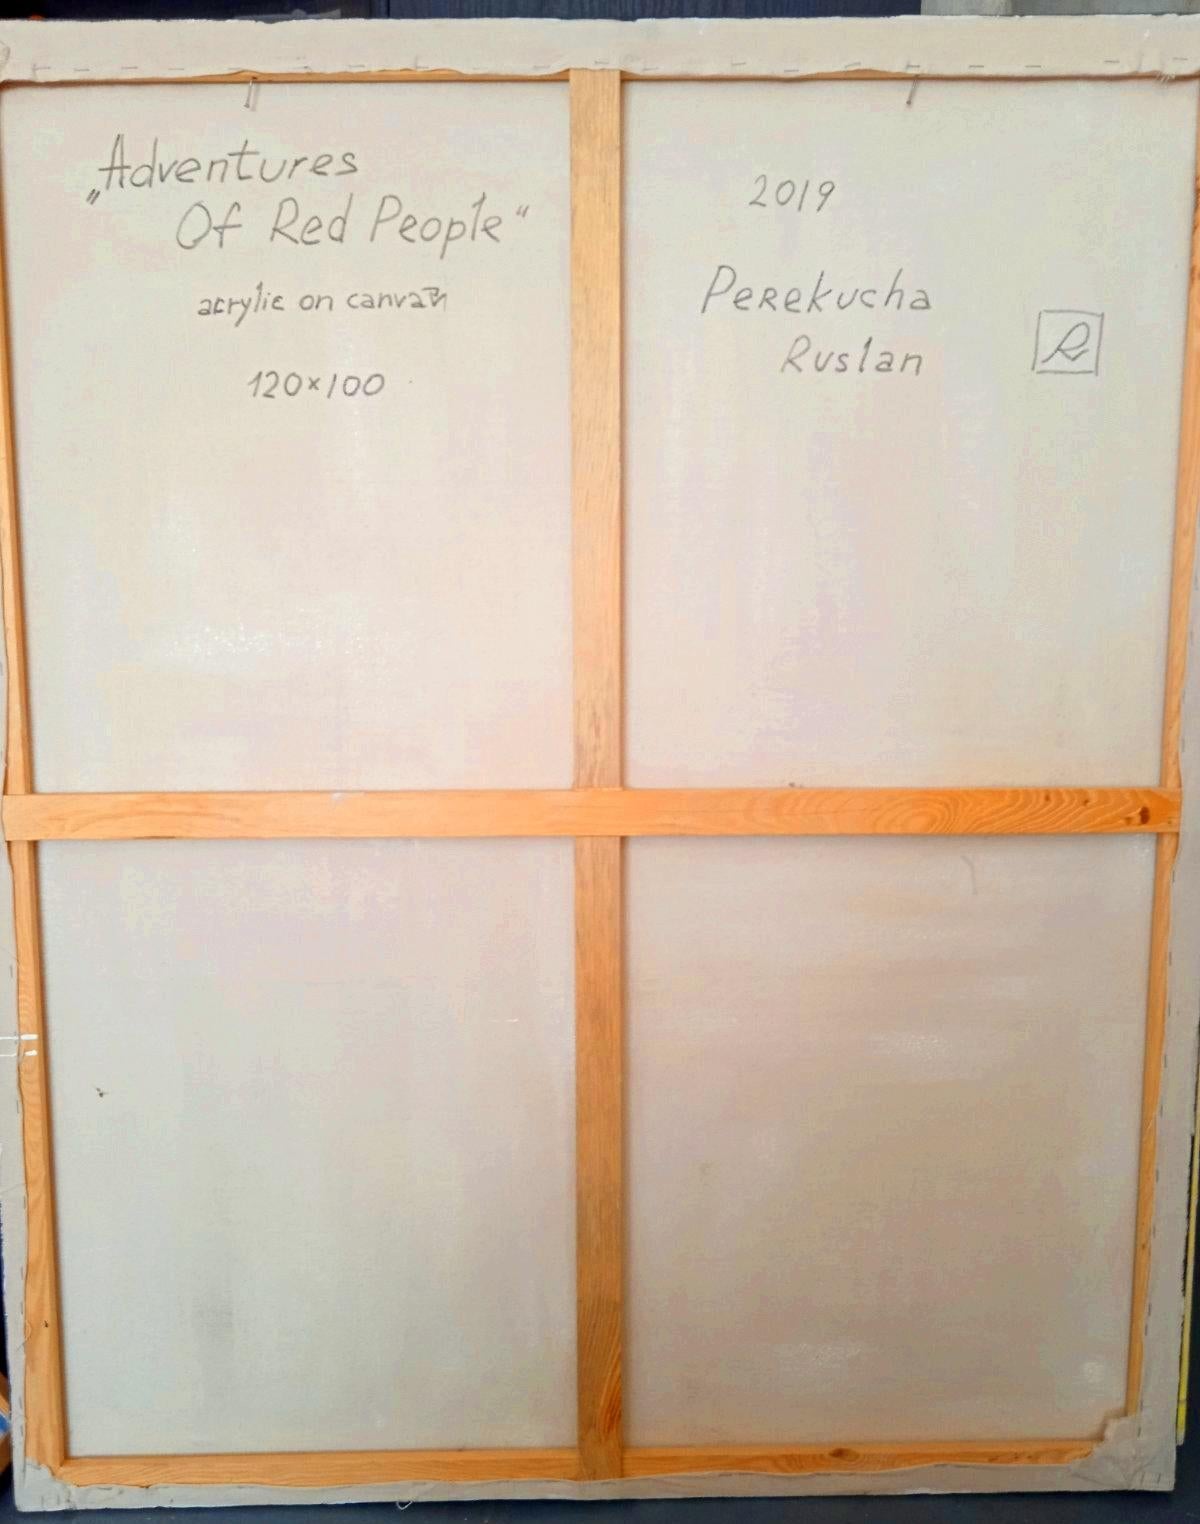 „Adventures
Of Red People“
acrylic on canvas
120×100
2019
Perekucha
Ruslan
R